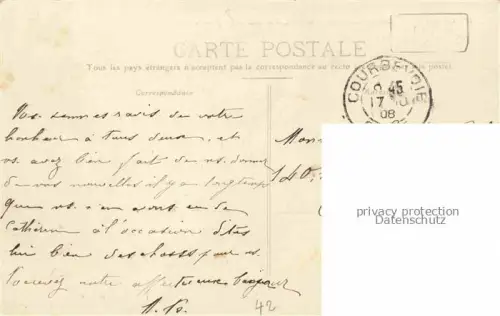 CARTE POSTALE
Tous les pays étrangers n'acceptent pas la correspondance au recto
Correspondance
COURBEVOIE
45
17
08
Ns sommes ravis de votre
bonheur à tous deux, et
vs avez bien fait de ns donner
de vos nouvelles il y a longtemps
que ns n'en avons eu de
Catherine à l'occasion dites
lui bien des choses pour ns
Recevez notre affectueux bonjour
140
privacy protection
Datenschutz
42